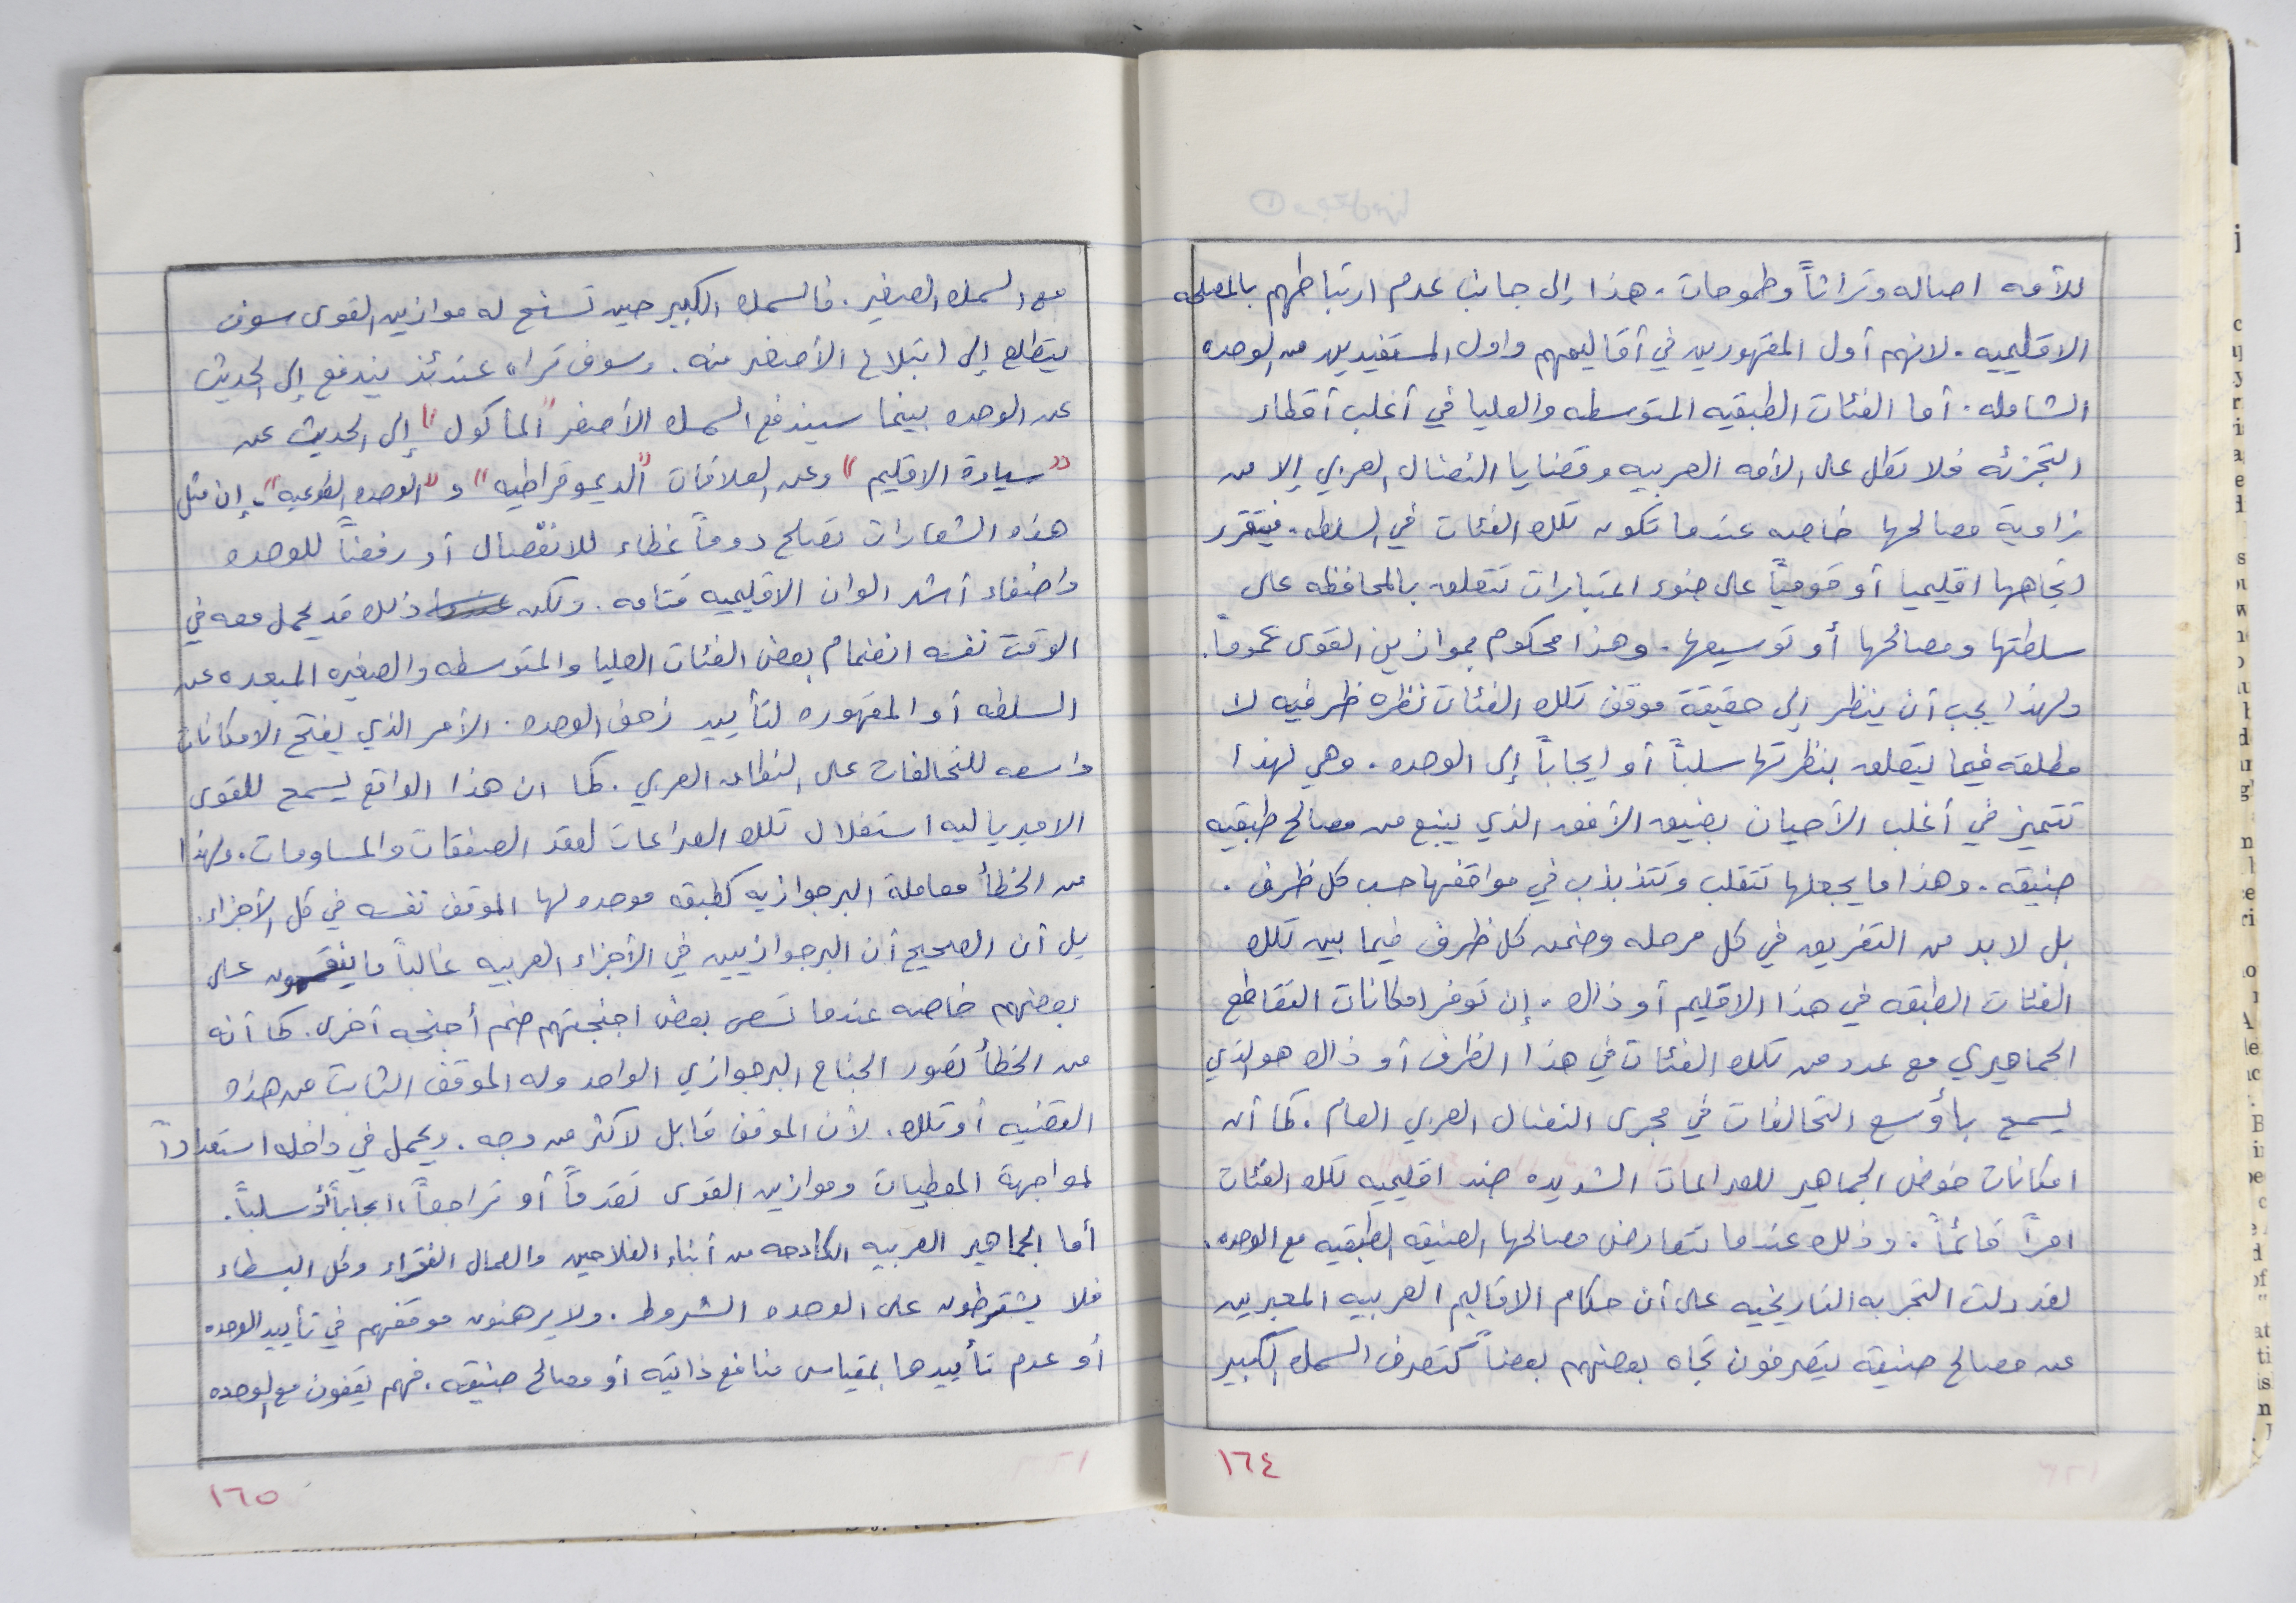 للأمه اصاله وتراثاً وطموحات. هذا إلى جانب عدم ارتباطهم بالمصلحه
الاقليميه. لانهم أول المقهورين في أقاليمهم واول المستفيدين من الوحده
الشامله. أما الفئات الطبقيه المتوسطه والعليا في أغلب أقطار
التجزئه فلا تطل على الأمه العربيه وقضايا النضال العربي إلا من
زاوية مصالحها خاصه عندما تكون تلك الفئات في السلطه. فيتقرر
اتجاهها اقليميا أو قومياً على ضوء اعتبارات تتعلق بالمحافظه على
سلطتها ومصالحها أو توسيعها. وهذا محكوم بموازين القوى عموماً.
ولهذا يجب أن ينظر إلى حقيقة موقف تلك الفئات نظره ظرفيه لا
مطلقه فيما يتعلق بنظرتها سلباً أو ايجاباً إلى الوحده. وهي لهذا
تتميز في أغلب الأحيان بضيق الأفق الذي ينبع من مصالح طبقيه
ضيقه. وهذا ما يجعلها تتقلب وتتذبذب في مواقفها حسب كل ظرف.
بل لا بد من التفريق في كل مرحله وضمن كل ظرف فيما بين تلك
الفئات الطبقه في هذا الاقليم أو ذاك. إن توفر امكانات التقاطع
الجماهيري مع عدد من تلك الفئات في هذا الظرف أو ذاك هو الذي
يسمح بأوسع التحالفات في مجرى النضال العربي العام. كما أن
امكانات خوض الجماهير للصراعات الشديده ضد اقليميه تلك الفئات
امراً قائماً. وذلك عندما تتعارض مصالحها الضيقه الطبقيه مع الوحده.
لقد دلت التجربه التاريخيه على أن حكام الاقاليم العربيه المعبرين
عن مصالح ضيقه يتصرفون تجاه بعضهم بعضاً كتصرف السمك الكبير
١٦٤
مع السمك الصغير. فالسمك الكبير حين تسنح له موازين القوى سوف
يتطلع إلى ابتلاع الأصغر منه. وسوف تراه عندئذ يندفع إلى الحديث
عن الوحده بينما سيندفع السمك الأصغر "المأكول" إلى الحديث عن
"سيادة الاقليم" وعن العلاقات "الديموقراطيه" و"الوحده الطوعيه". إن مثل
هذه الشعارات تصلح دوماً غطاء للانفصال أو رفضاً للوحده
واضفاء أشد الوان الاقليميه قتامه. ولكن ذلك قد يحمل معه في
الوقت نفسه انضمام بعض الفئات العليا والمتوسطه والصغيره المبعده عن
السلطه أو المقهوره لتأييد زحف الوحده. الأمر الذي يفتح الامكانات
واسعه للتحالفات على النطاق العربي. كما ان هذا الواقع يسمح للقوى
الامبرياليه استغلال تلك الصراعات لعقد الصفقات والمساومات. ولهذا
من الخطأ معاملة البرجوازيه كطبقه موحده لها الموقف نفسه في كل الأجزاء.
بل أن الصحيح أن البرجوازيين في الأجزاء العربيه غالباً ما على
بعضهم خاصه عندما تسعى بعض اجنحتهم ضم أجنحه أخرى. كما أنه
من الخطأ تصور الجناح البرجوازي الواحد وله الموقف الثابت من هذه
القضيه أو تلك. لأن الموقف قابل لاكثر من وجه. ويحمل في داخله استعداداً
لمواجهة المعطيات وموازين القوى تقدماً أو تراجعاً، ايجاباً أو سلباً.
أما الجماهير العربيه الكادحه من أبناء الفلاحين والعمال الفقراء وكل البسطاء
فلا يشترطون على الوحده الشروط. ولا يرهنون موقفهم في تأييد الوحده
أو عدم تأييدها بمقياس منافع ذاتيه أو مصالح ضيقه. فهم يقفون مع الوحده
١٦٥